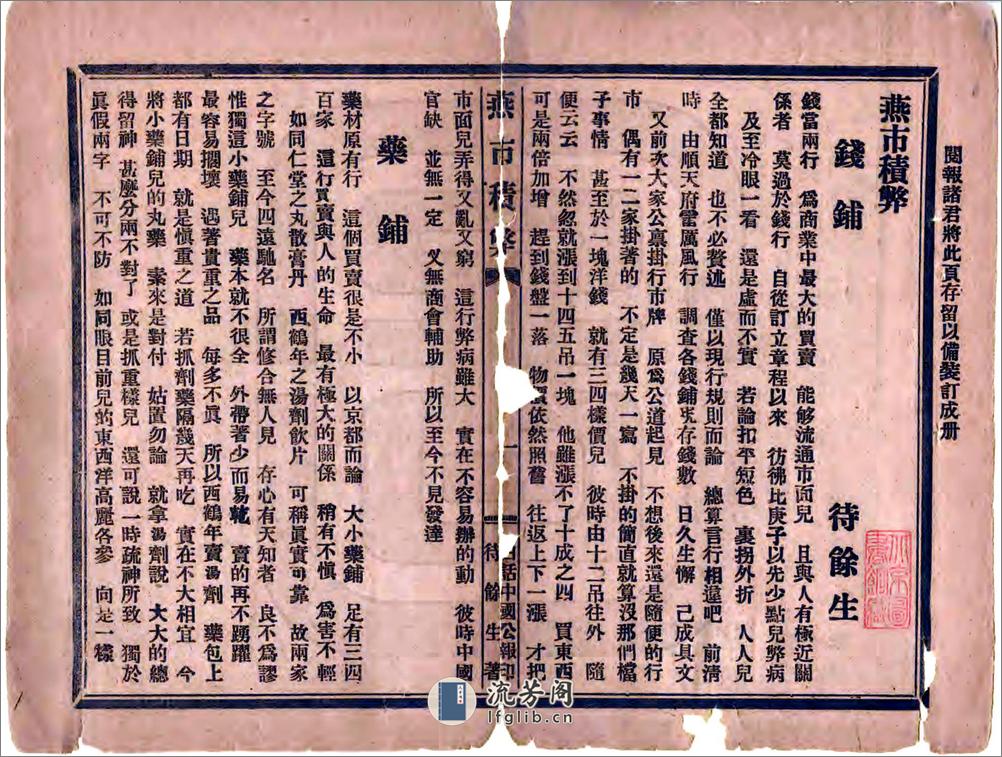 閱報諸君將此頁存留以備裝訂成册
燕市積弊
錢鋪 待餘生
錢當兩行 爲商業中最大的買賣 能够流通市面兒 且與人有極近關
係者 莫過於錢行 自從訂立章程以來 彷彿比庚子以先少點兒弊病
及至冷眼一看 還是虛而不實 若論扣平短色 裏拐外折 人人兒
全都知道 也不必贅述 僅以現行規則而論 總算言行相違吧 前清
時 由順天府雷厲風行 調查各錢鋪存錢數 日久生懈 已成具文
又前次大家公禀掛行市牌 原爲公道起見 不想後來還是隨便的行
市 偶有一二家掛著的 不定是幾天一寫 不掛的簡直就算沒那們檔
子事情 甚至於一塊洋錢 就有三四樣價兒 彼時由十二吊往外 隨
便云云 不然忽就漲到十四五吊一塊 他雖漲不了十成之四 買東西
可是兩倍加增 趕到錢盤一落 物價依然照舊 往返上下一漲 才把
燕市積弊 一 待餘生著
話中國公報印
市面兒弄得又亂又窮 這行弊病雖大 實在不容易辦的動 彼時中國
官缺 並無一定 又無商會輔助 所以至今不見發達
藥鋪
藥材原有行 這個買賣很是不小 以京都而論 大小藥鋪 足有三四
百家 這行買賣與人的生命 最有極大的關係 稍有不愼 爲害不輕
如同仁堂之丸散膏丹 西鶴年之湯劑飲片 可稱眞實可靠 故兩家
之字號 至今四遠馳名 所謂修合無人見 存心有天知者 良不爲謬
惟獨這小藥鋪兒 藥本就不很全 外帶著少而易乾 賣的再不踴躍
最容易擱壞 遇著貴重之品 每多不眞 所以西鶴年賣湯劑 藥包上
都有日期 就是愼重之道 若抓劑藥隔幾天再吃 實在不大相宜 今
將小藥鋪兒的丸藥 素來是對付 姑置勿論 就拿湯劑說 大大的總
得留神 甚麼分兩不對了 或是抓重樣兒 還可說一時疏神所致 獨於
眞假兩字 不可不防 如同眼目前兒的東西洋高麗各參 向是一樣
流芳阁
lfglib.cn